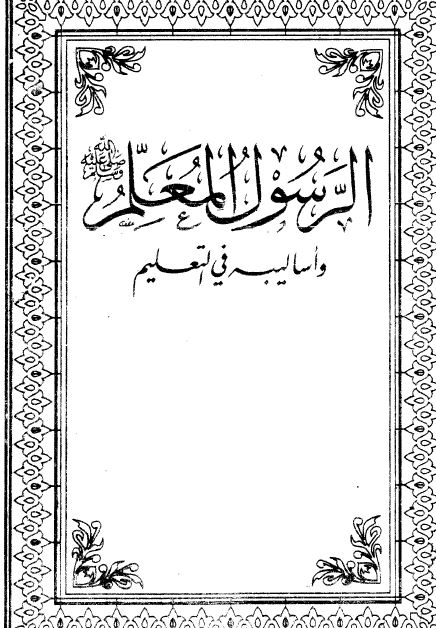 الرَّسُولُ المُعَلِّمُ صلى الله عليه وسلم
وأساليبه في التعليم